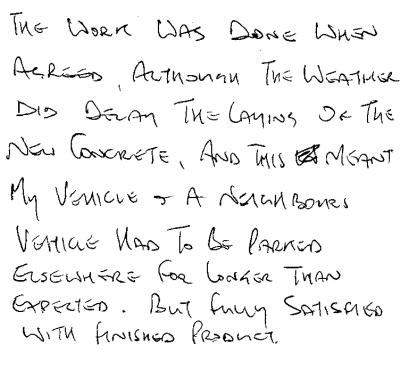 THE WORK WAS DONE WHEN
AGREED, ALTHOUGH THE WEATHER
DID DELAY THE LAYING OF THE
NEW CONCRETE, AND THIS MEANT
MY VEHICLE & A NEIGHBOURS
VEHICLE HAD TO BE PARKED
ELSEWHERE FOR LONGER THAN
EXPECTED. BUT FULLY SATISFIED
WITH FINISHED PRODUCT.